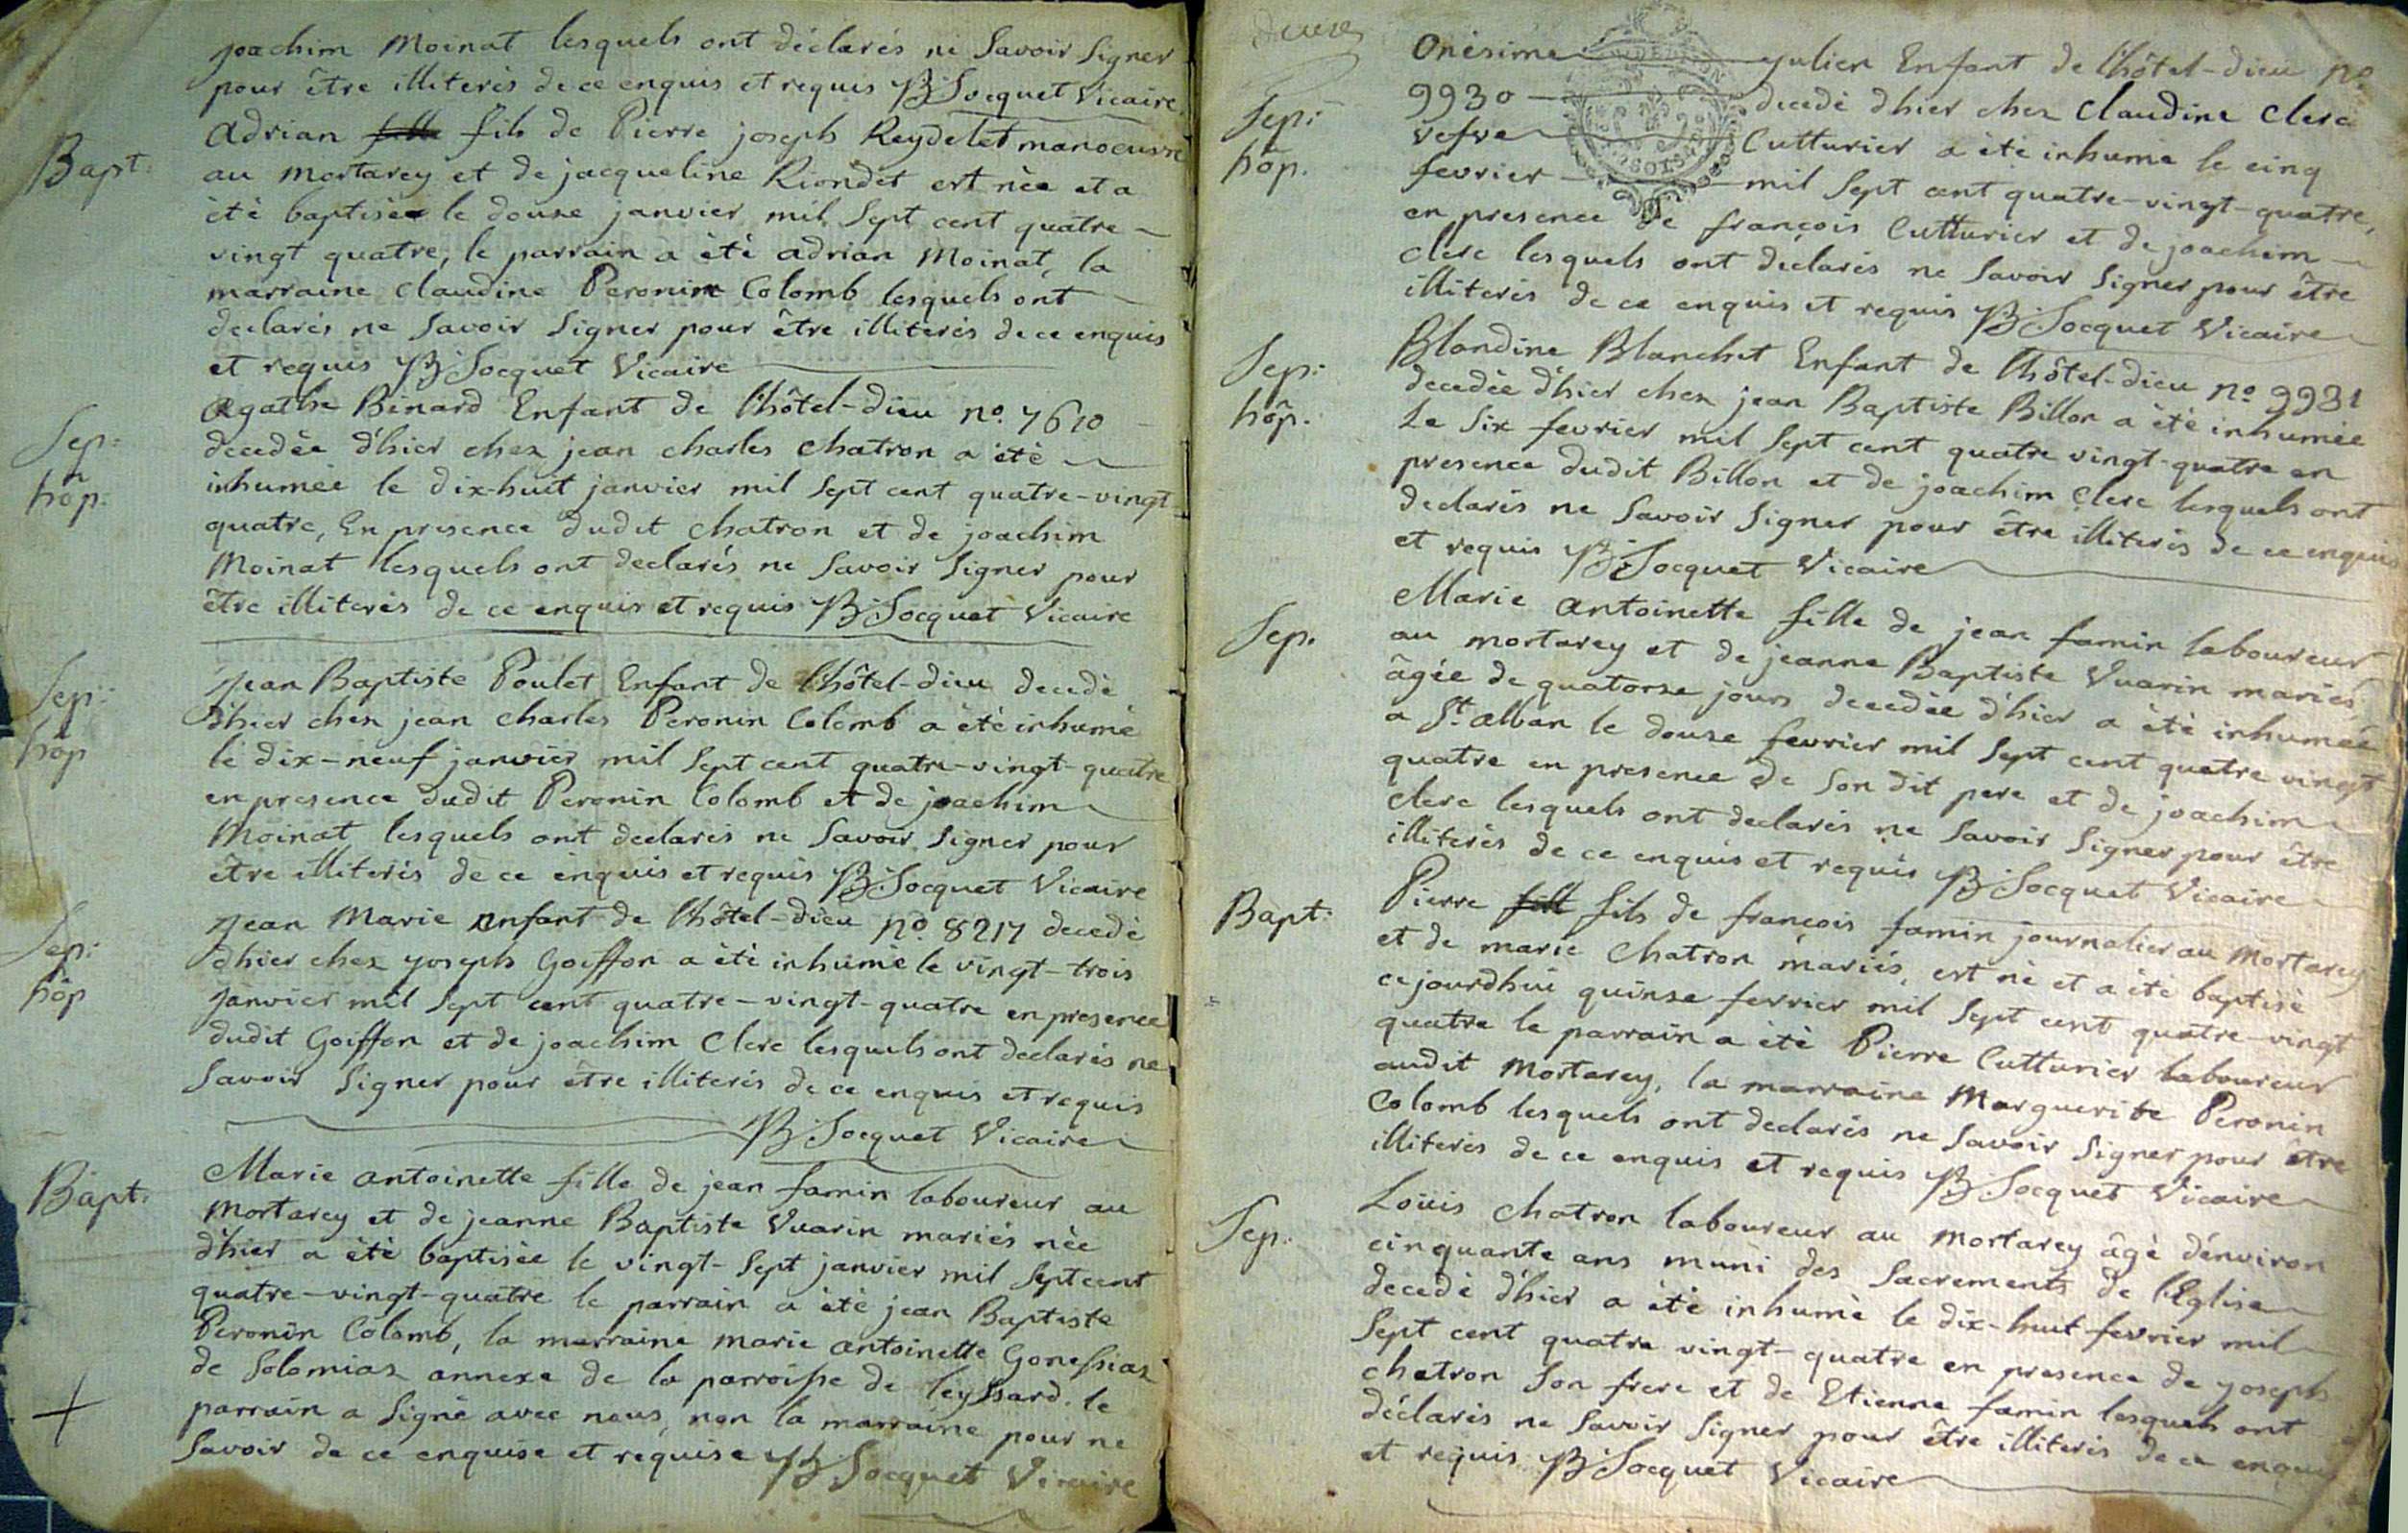 joachim Moinat lesquels ont déclarés ne Savoir Signer
pour être illiterés de ce enquis et requis B Socquet Vicaire
Bapt: Adrian fils de Pierre joseph Reydelet manoeuvre
au mortarey et de jacqueline Riondet est née et a
été baptisée le douze janvier mil Sept cent quatre-
vingt quatre, le parrain a été adrian Moinat, la
marraine claudine Peronin Colomb lesquels ont
declarés ne Savoir Signer pour être illiterés de ce enquis
et requis B Socquet Vicaire
Sep: hôp: Agathe Binard Enfant de l'hôtel-dieu no. 7610
decedée d'hier chez jean charles chatron a été
inhumée le dix-huit janvier mil Sept cent quatre-vingt
quatre, En presence dudit chatron et de joachim
Moinat lesquels ont declarés ne Savoir Signer pour
être illiterés de ce enquis et requis B Socquet Vicaire
Sep: hôp Jean Baptiste Poulet Enfant de l'hôtel-dieu decedé
d'hier chez jean charles Peronin Colomb a été inhumé
le dix-neuf janvier mil Sept cent quatre-vingt-quatre
en presence dudit Peronin Colomb et de joachim
Moinat lesquels ont declarés ne Savoir Signer pour
être illiterés de ce enquis et requis B Socquet Vicaire
Sep: hôp Jean Marie Enfant de l'hôtel-dieu no. 8217 decedé
dhier chez joseph Goiffon a été inhumé le vingt-trois
janvier mil Sept cent quatre-vingt-quatre en presence
dudit Goiffon et de joachim Clerc lesquels ont declarés ne
Savoir Signer pour être illiterés de ce enquis et requis
B Socquet Vicaire
Bapt: Marie antoinette fille de jean famin laboureur au
Mortarey et de jeanne Baptiste Vuarin mariés née
d'hier a été baptisée le vingt-Sept janvier mil Sept cent
quatre-vingt-quatre le parrain a été jean Baptiste
Peronin Colomb, la marraine marie antoinette Gonessiaz
de Solomiaz annexe de la parroisse de leyssard. le
parrain a Signé avec nous, non la marraine pour ne
Savoir de ce enquise et requise B Socquet Vicaire
Sep: hôp. Onésime julien Enfant de l'hôtel-dieu no.
9930 decedé dhier chez claudine clerc
vefve Cutturier a été inhumé le cinq
fevrier mil Sept cent quatre-vingt-quatre,
en presence de françois Cutturier et de joachim
clerc lesquels ont declarés ne Savoir Signer pour être
illiterés de ce enquis et requis B Socquet Vicaire
Sep: hôp. Blandine Blanchet Enfant de l'hôtel-dieu no. 9981
decedée d'hier chez jean Baptiste Billon a été inhumée
Le Six fevrier mil Sept cent quatre vingt-quatre en
presence dudit Billon et de joachim clerc lesquels ont
declarés ne Savoir Signer pour être illiterés de ce enquis
et requis B Socquet Vicaire
Sep. Marie antoinette fille de jean famin laboureur
au mortarey et de jeanne Baptiste Vuarin mariés,
âgée de quatorze jours decedée d'hier a été inhumée
a St. alban le douze fevrier mil Sept cent quatre vingt
quatre en presence de Son dit pere et de joachim
clerc lesquels ont declarés ne Savoir Signer pour être
illiterés de ce enquis et requis B Socquet Vicaire
Bapt: Pierre fils de françois famin journalier au Mortarey
et de marie Chatron mariés, est né et a été baptisé
cejourdhui quinse fevrier mil Sept cent quatre-vingt
quatre le parrain a été Pierre Cutturier laboureur
audit Mortarey, la marraine Marguerite Peronin
Colomb lesquels ont declarés ne Savoir Signer pour être
illiterés de ce enquis et requis B Socquet Vicaire
Sep. Loüis chatron laboureur au Mortarey âgé d'environ
cinquante ans muni des Sacrements de l'Eglise
decedé d'hier a été inhumé le dix-huit fevrier mil
Sept cent quatre vingt-quatre en presence de joseph
chatron Son frere et de Etienne famin lesquels ont
déclarés ne Savoir Signer pour être illiterés de ce enquis
et requis B Socquet Vicaire